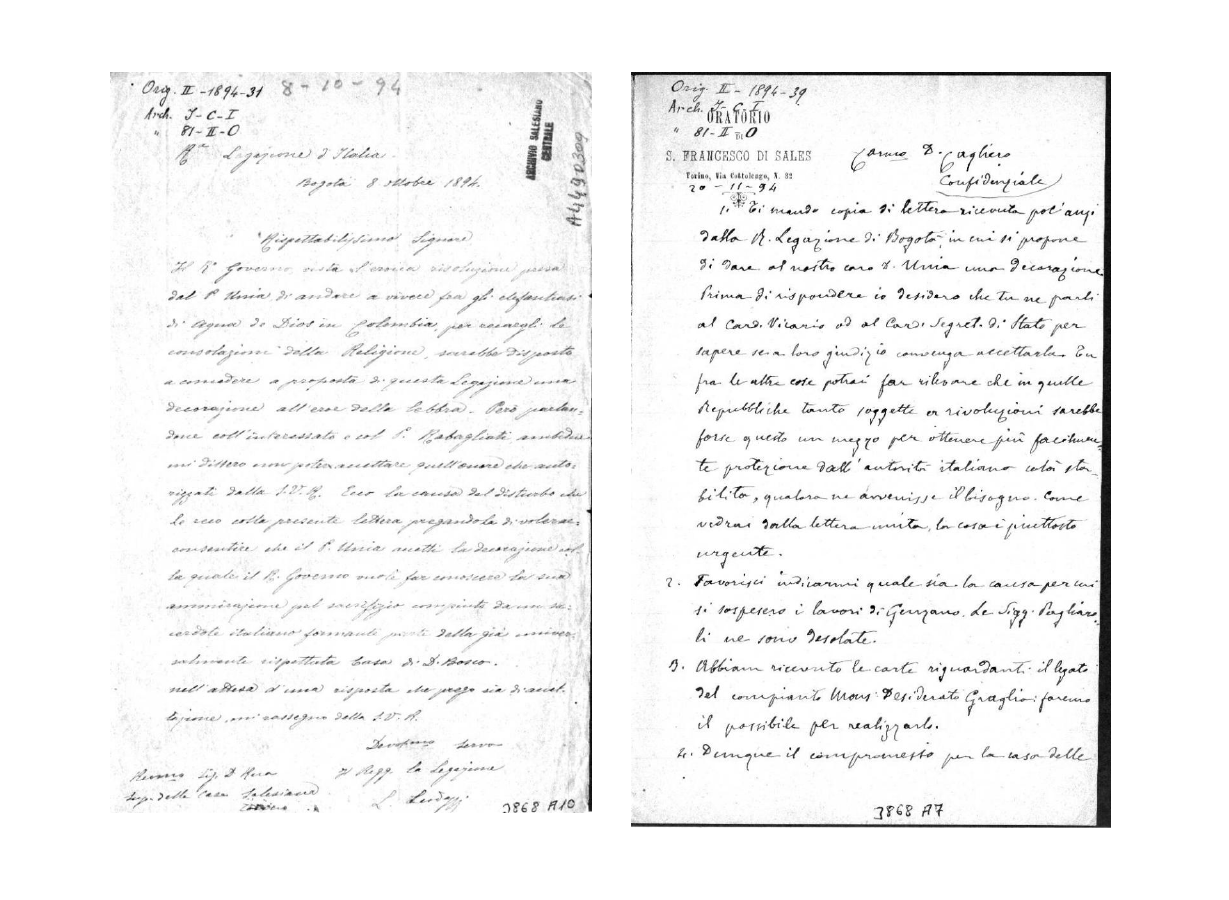 Orig. II - 1894-31
8-10-94
Arch. J-C-I
" 81-II-O
ARCHIVIO SALESIANO
CENTRALE
A4490309
Ra Legazione d'Italia.
Bogotá 8 ottobre 1894.
Rispettabilissimo Signore
Il Ro Governo, vista l'eroica risoluzione presa
dal P. Unia di andare a vivere fra gli elefantiasi
di Agua de Dios in Colombia, per recargli le
consolazioni della Religione, sarebbe disposto
a concedere a proposta di questa Legazione una
decorazione all'eroe della lebbra. Però parlan-
done coll'interessato e col P. Rabagliati ambedue
mi dissero non poter accettare quell'onore che auto-
rizzati dalla S.V.R. Ecco la causa del disturbo che
le reco colla presente lettera pregandola di voler ac-
consentire che il P. Unia accetti la decorazione col-
la quale il R. Governo vuole far conoscere la sua
ammirazione pel sacrifizio compiuto da un sa-
cerdote italiano formante parte della già univer-
salmente rispettata Casa di D. Bosco.
Nell'attesa d'una risposta che prego sia di accet-
tazione, mi rassegno della S.V.R.
Devotmo servo
Il Regg. la Legazione
Revmo Sig. D. Rua
Sup. delle Case Salesiane
Torino
3868 A10
Orig. II - 1894-39
Arch. J-C-I
" 81-II-O
ORATORIO
DI
S. FRANCESCO DI SALES
Torino, Via Cottolengo, N. 32
20-11-94
Carmo D. Cagliero
Confidenziale
1. Ti mando copia di lettera ricevuta pol'anzi
dalla R. Legazione di Bogotà, in cui si propone
di dare al nostro caro D. Unia una decorazione
Prima di rispondere io desidero che tu ne parli
al Card. Vicario od al Card. Segret. di Stato per
sapere se a loro giudizio convenga accettarla. Tu
fra le altre cose potrai far rilevare che in quelle
Repubbliche tanto soggette a rivoluzioni sarebbe
forse questo un mezzo per ottenere più facilmen-
te protezione dall'autorità italiana colà sta-
bilita, qualora ne avvenisse il bisogno. Come
vedrai dalla lettera unita, la cosa è piuttosto
urgente.
2. Favorisci indicarmi quale sia la causa per cui
si sospesero i lavori di Genzano. Le Sigg. Pagliaro-
li ne sono desolate.
3. Abbiam ricevuto le carte riguardanti il legato
del compianto Mons. Desiderato Graglia: faremo
il possibile per realizzarlo.
4. Dunque il compromesso per la casa delle
3868 A7